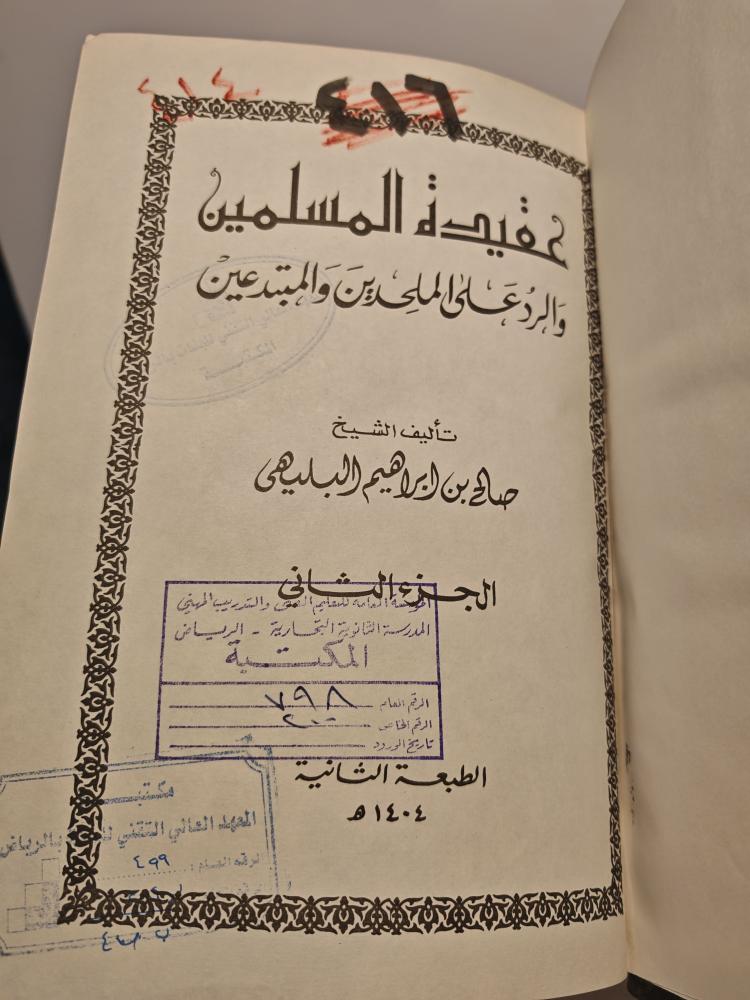 ٤١٦
عقيدة المسلمين
والرد على الملحدين والمبتدعين
تأليف الشيخ
صالح بن ابراهيم البليهي
الجزء الثاني
المؤسسة العامة للتعليم الفني والتدريب المهني
المدرسة الثانوية التجارية - الرياض
المكتبة
الرقم العام ٧٩٨
الرقم الخاص
تاريخ الورود
الطبعة الثانية
١٤٠٤ هـ
مكتبة
المعهد العالي التقني بالرياض
الرقم العام: ٤٩٩